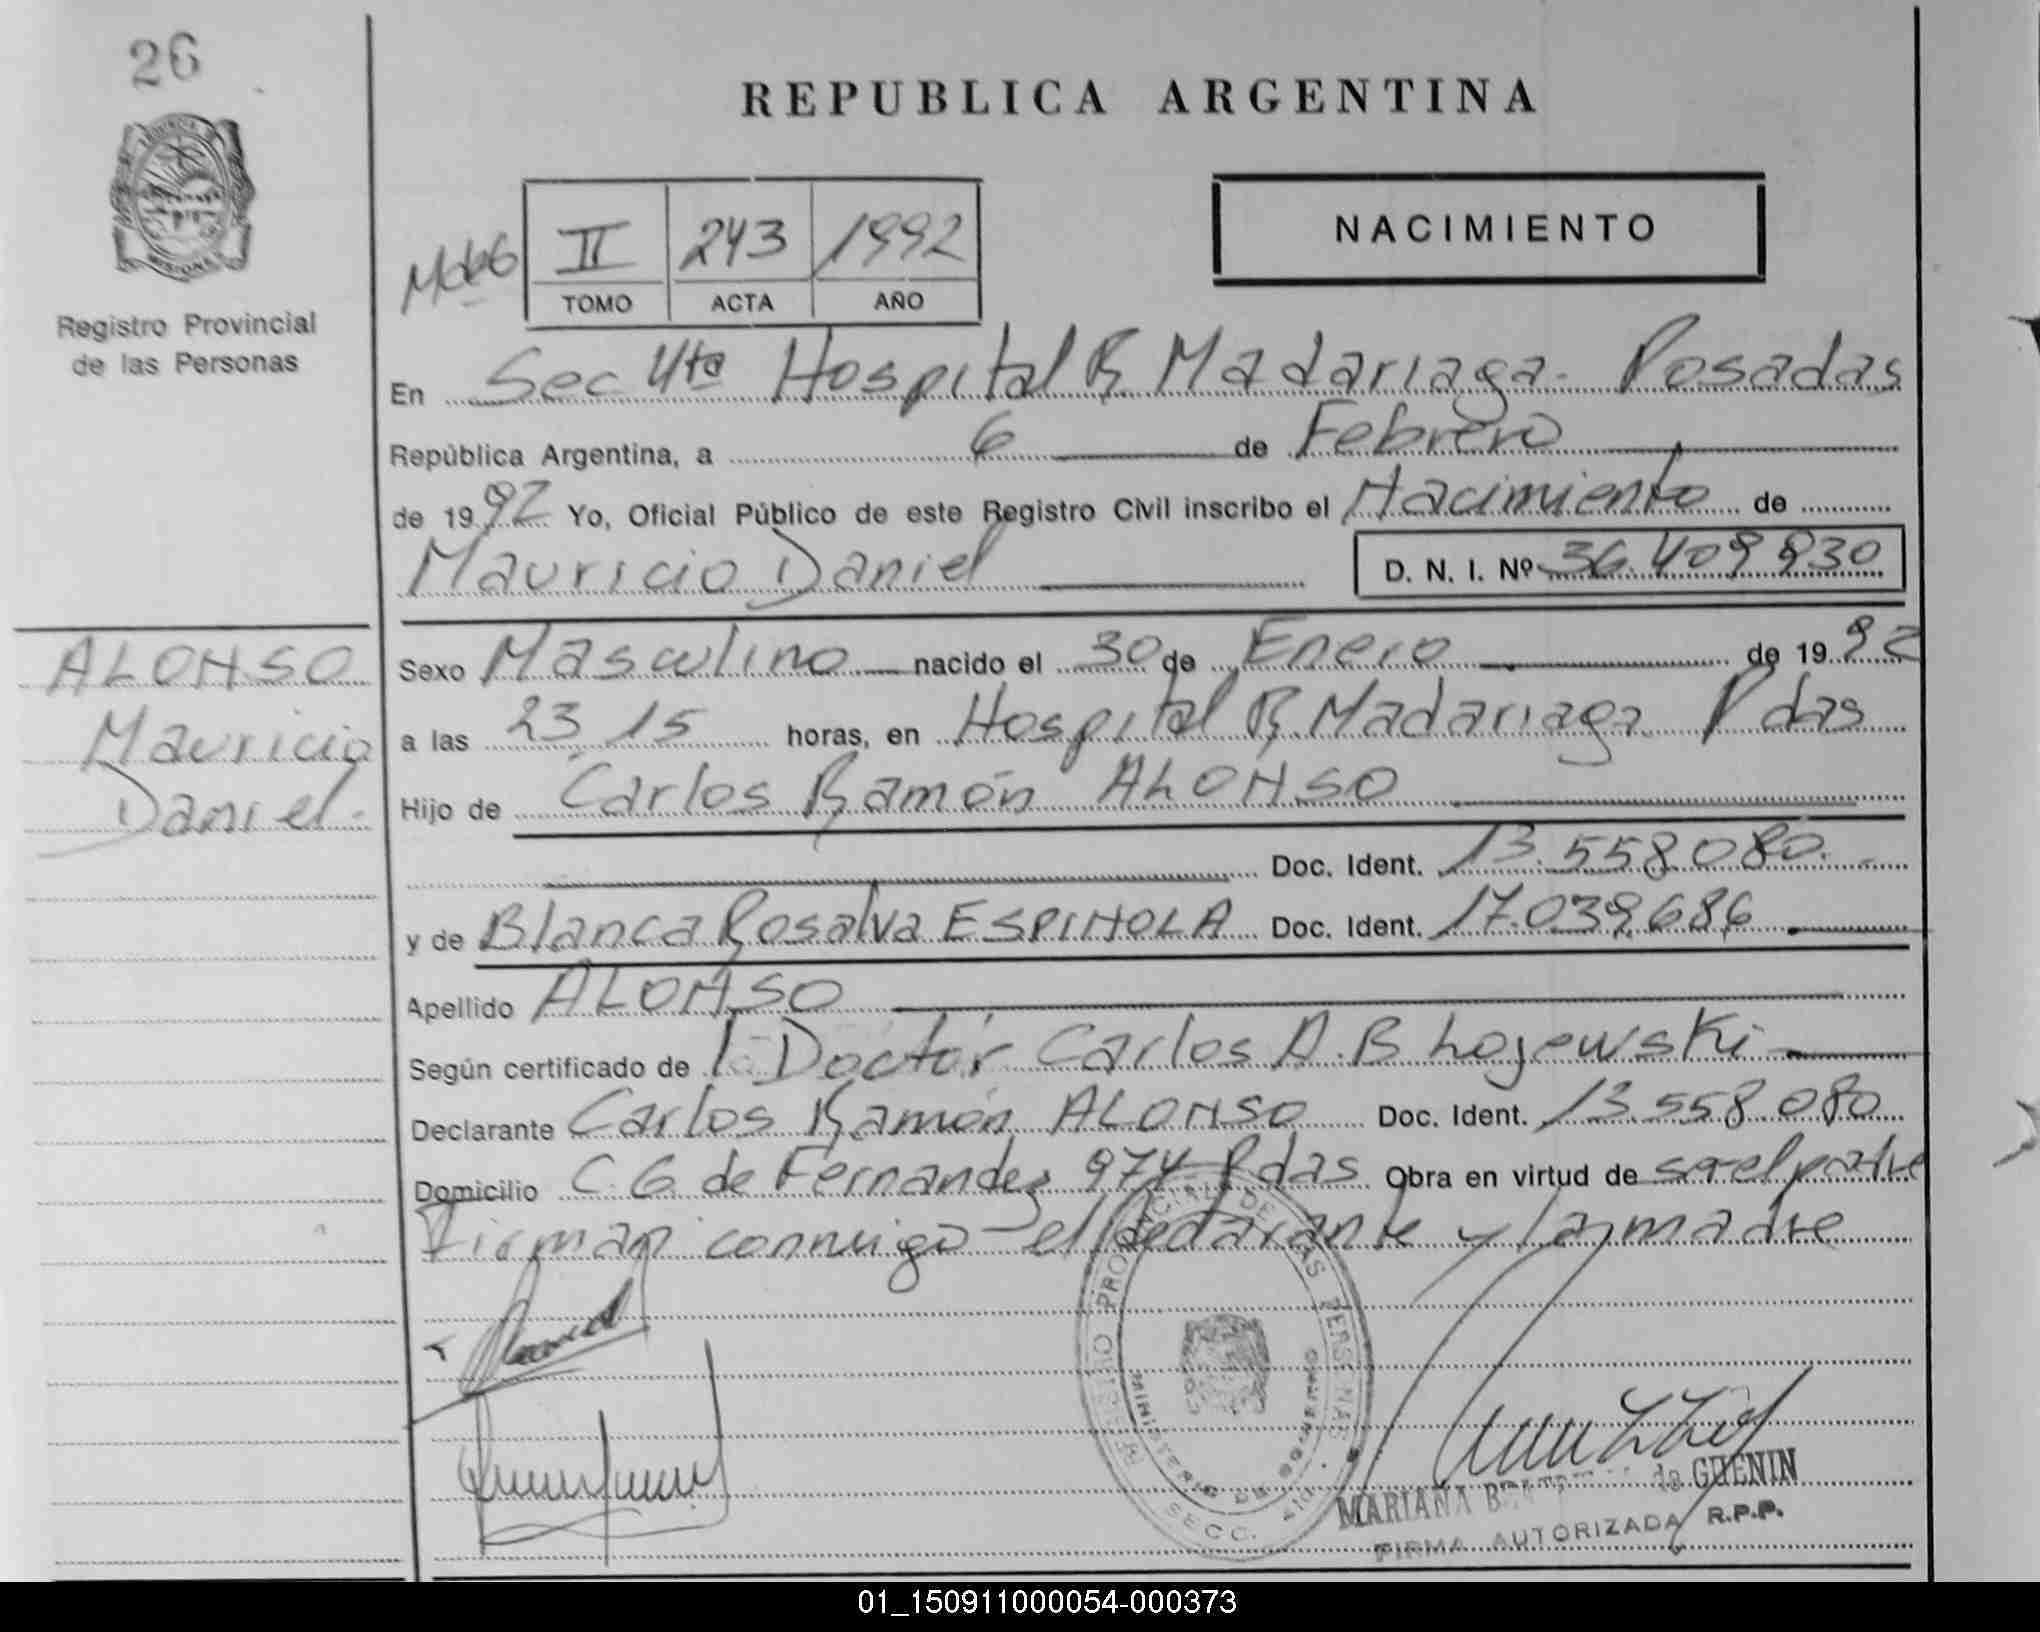 26
REPUBLICA ARGENTINA
NACIMIENTO
II 243 1992
TOMO ACTA AÑO
Registro Provincial
de las Personas
En Sec 4ta Hospital R Madariaga - Posadas
República Argentina, a 6 de Febrero
de 1992 Yo, Oficial Público de este Registro Civil inscribo el Nacimiento de
Mauricio Daniel D. N. I. Nº 36.409.930
ALONSO
Mauricio
Daniel.-
Sexo Masculino nacido el 30 de Enero de 1992
a las 23 15 horas, en Hospital R. Madariaga Pdas
Hijo de Carlos Ramón ALONSO
Doc. Ident. 13.558.080.-
y de Blanca Rosalva ESPINOLA Doc. Ident. 17.039.686
Apellido ALONSO
Según certificado de Doctor Carlos A. B Lojewski
Declarante Carlos Ramón ALONSO Doc. Ident. 13.558.080
Domicilio C. G. de Fernandez 974 Pdas Obra en virtud de ser el padre
Firman conmigo el declarante y la madre
REGISTRO PROVINCIAL DE LAS PERSONAS
MINISTERIO DE GOBIERNO
SECC. 4ta
MARIANA de GUENIN
FIRMA AUTORIZADA R.P.P.
01_150911000054-000373